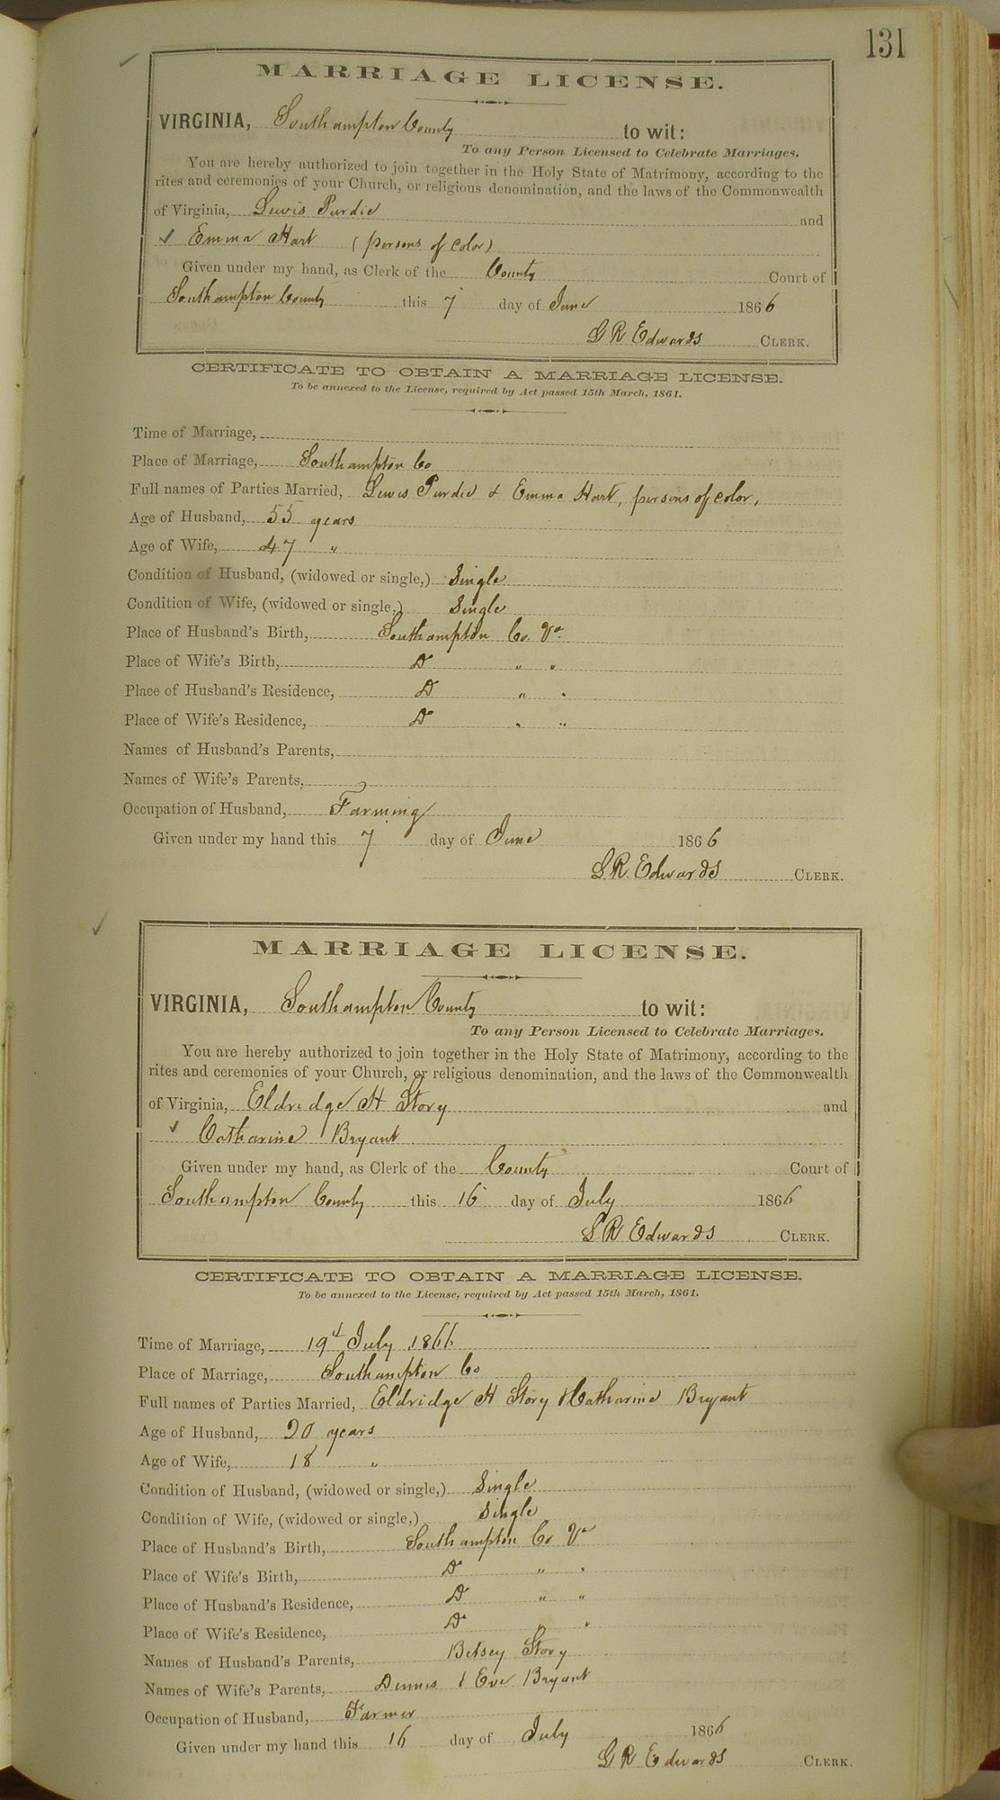 131
MARRIAGE LICENSE.
VIRGINIA, Southampton County to wit:
To any Person Licensed to Celebrate Marriages.
You are hereby authorized to join together in the Holy State of Matrimony, according to the
rites and ceremonies of your Church, or religious denomination, and the laws of the Commonwealth
of Virginia, Lewis Purdie and
Emma Hart (persons of color)
Given under my hand, as Clerk of the County Court of
Southampton County this 7 day of June 1866
L R Edwards CLERK.
CERTIFICATE TO OBTAIN A MARRIAGE LICENSE.
To be annexed to the License, required by Act passed 15th March, 1861.
Time of Marriage,
Place of Marriage, Southampton Co
Full names of Parties Married, Lewis Purdie & Emma Hart, persons of color,
Age of Husband, 55 years
Age of Wife, 47 "
Condition of Husband, (widowed or single,) Single
Condition of Wife, (widowed or single,) Single
Place of Husband's Birth, Southampton Co. Va
Place of Wife's Birth, Do " "
Place of Husband's Residence, Do " "
Place of Wife's Residence, Do " "
Names of Husband's Parents,
Names of Wife's Parents,
Occupation of Husband, Farming
Given under my hand this 7 day of June 1866
L R Edwards CLERK.
MARRIAGE LICENSE.
VIRGINIA, Southampton County to wit:
To any Person Licensed to Celebrate Marriages.
You are hereby authorized to join together in the Holy State of Matrimony, according to the
rites and ceremonies of your Church, or religious denomination, and the laws of the Commonwealth
of Virginia, Eldridge H Story and
Catharine Bryant
Given under my hand, as Clerk of the County Court of
Southampton County this 16 day of July 1866
L R Edwards CLERK.
CERTIFICATE TO OBTAIN A MARRIAGE LICENSE.
To be annexed to the License, required by Act passed 15th March, 1861.
Time of Marriage, 19th July 1866
Place of Marriage, Southampton Co
Full names of Parties Married, Eldridge H Story & Catharine Bryant
Age of Husband, 20 years
Age of Wife, 18 "
Condition of Husband, (widowed or single,) Single
Condition of Wife, (widowed or single,) Single
Place of Husband's Birth, Southampton Co Va
Place of Wife's Birth, Do " "
Place of Husband's Residence, Do " "
Place of Wife's Residence, Do "
Names of Husband's Parents, Betsey Story
Names of Wife's Parents, Dennis & Eve Bryant
Occupation of Husband, Farmer
Given under my hand this 16 day of July 1866
L R Edwards CLERK.